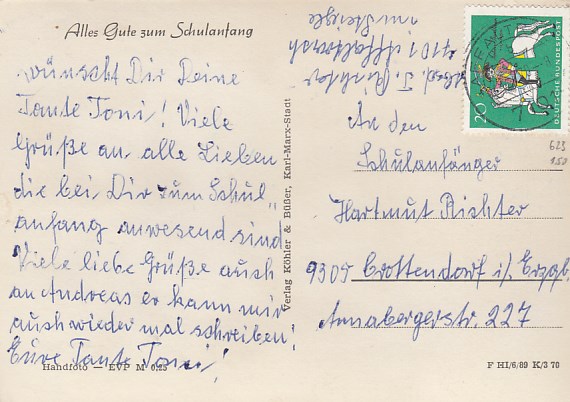 Alles Gute zum Schulanfang
wünscht Dir Deine
Tante Toni! Viele
Grüße an alle Lieben
die bei Dir zum Schul„
anfang anwesend sind
Viele liebe Grüße auch
an Andreas er kann mir
auch wieder mal schreiben!
Eure Tante Toni!
Handfoto — EVP M 0,25
Verlag Köhler & Büßer, Karl-Marx-Stadt
Absd. T. Richter
7101
im Steigle
20
DEUTSCHE BUNDESPOST
623
150
An den
Schulanfänger
Hartmut Richter
9305 Crottendorf i/. Erzgb.
Annabergerstr. 227
F HI/6/89 K/3 70